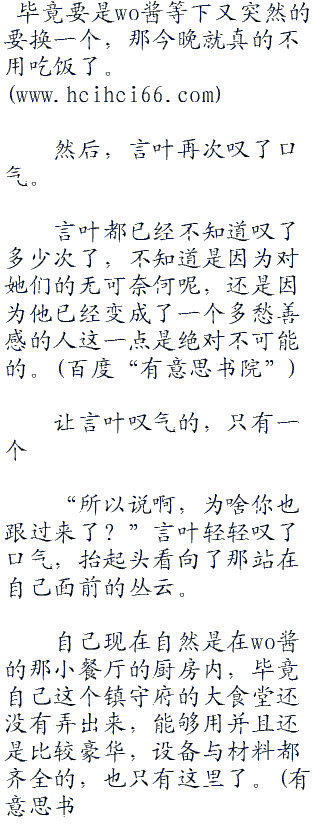 毕竟要是wo酱等下又突然的
要换一个，那今晚就真的不
用吃饭了。
(www.hcihci66.com)
然后，言叶再次叹了口
气。
言叶都已经不知道叹了
多少次了，不知道是因为对
她们的无可奈何呢，还是因
为他已经变成了一个多愁善
感的人这一点是绝对不可能
的。(百度“有意思书院”)
让言叶叹气的，只有一
个
“所以说啊，为啥你也
跟过来了？”言叶轻轻叹了
口气，抬起头看向了那站在
自己面前的丛云。
自己现在自然是在wo酱
的那小餐厅的厨房内，毕竟
自己这个镇守府的大食堂还
没有弄出来，能够用并且还
是比较豪华，设备与材料都
齐全的，也只有这里了。(有
意思书